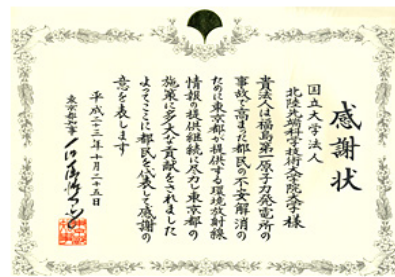 感謝状
国立大学法人
北陸先端科学技術大学院大学様
貴法人は福島第一原子力発電所の
事故で高まった都民の不安解消の
ために東京都が提供する環境放射線
情報の提供継続に尽力し東京都の
施策に多大な貢献をされました
よってここに都民を代表して感謝の
意を表します
平成二十三年十月二十五日
東京都知事